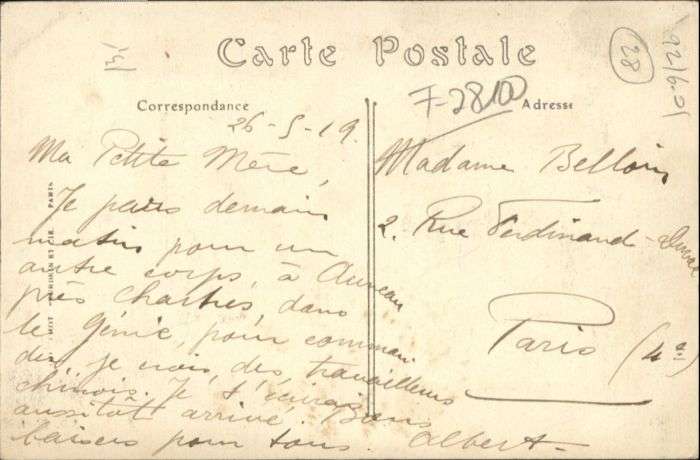 Carte Postale
28
F-2810
Correspondance
Adresse
26-5-19.
Ma Petite Mère,
Je pars demain
matin pour un
autre corps, à Auneau
près Chartres, dans
le Génie, pour comman
der, je crois, des travailleurs
chinois. Je t'écrirai
aussitôt arrivé. Bons
baisers pour tous. Albert-
Madame Belloin
2. Rue Ferdinand-Duval
Paris (4e)
PARIS